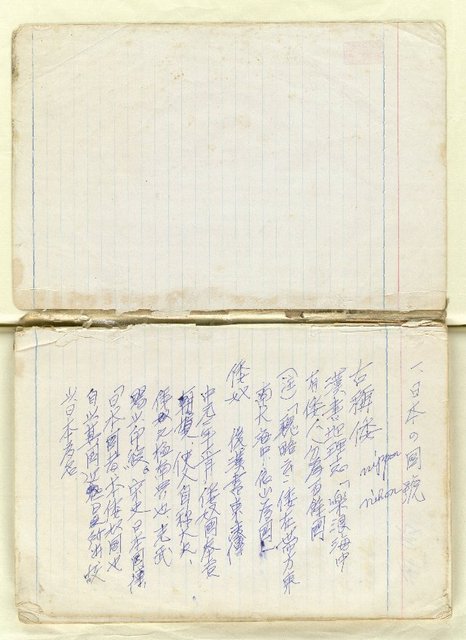 一、日本の国號
nippon
nihon
古稱倭
漢書地理志「樂浪海中
有倭人分為百餘國
(注)「魏略云」倭在帶方東
南大海中依山島為國」
倭奴 後漢書東夷傳
中元二年 倭奴國奉貢
朝賀使人自稱大夫、
倭國之極南界也 光武
賜以印綬。 日本國傳
日本國者本倭奴國也
自以其國近日所出故
以日本為名